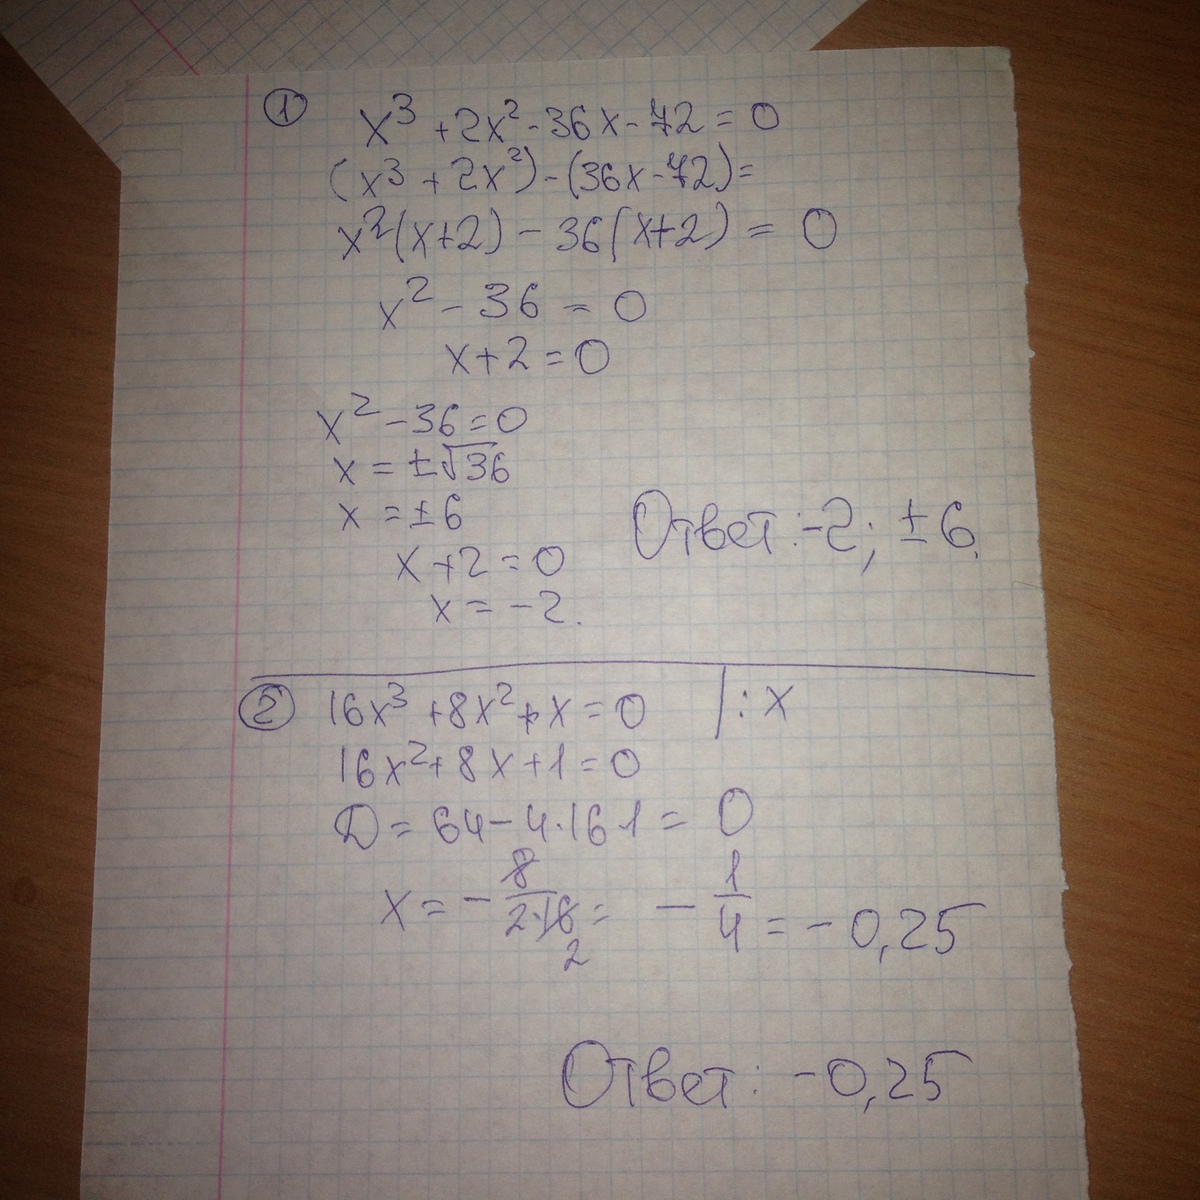 ① x³ + 2x² - 36x - 72 = 0
(x³ + 2x²) - (36x - 72) =
x²(x+2) - 36(x+2) = 0
x² - 36 = 0
x + 2 = 0
x² - 36 = 0
x = ±√36
x = ±6
x + 2 = 0
x = -2.
Ответ: -2; ±6.
② 16x³ + 8x² + x = 0 | : x
16x² + 8x + 1 = 0
D = 64 - 4·16·1 = 0
x = - 8/(2·16) = - 1/4 = - 0,25
2
Ответ: -0,25